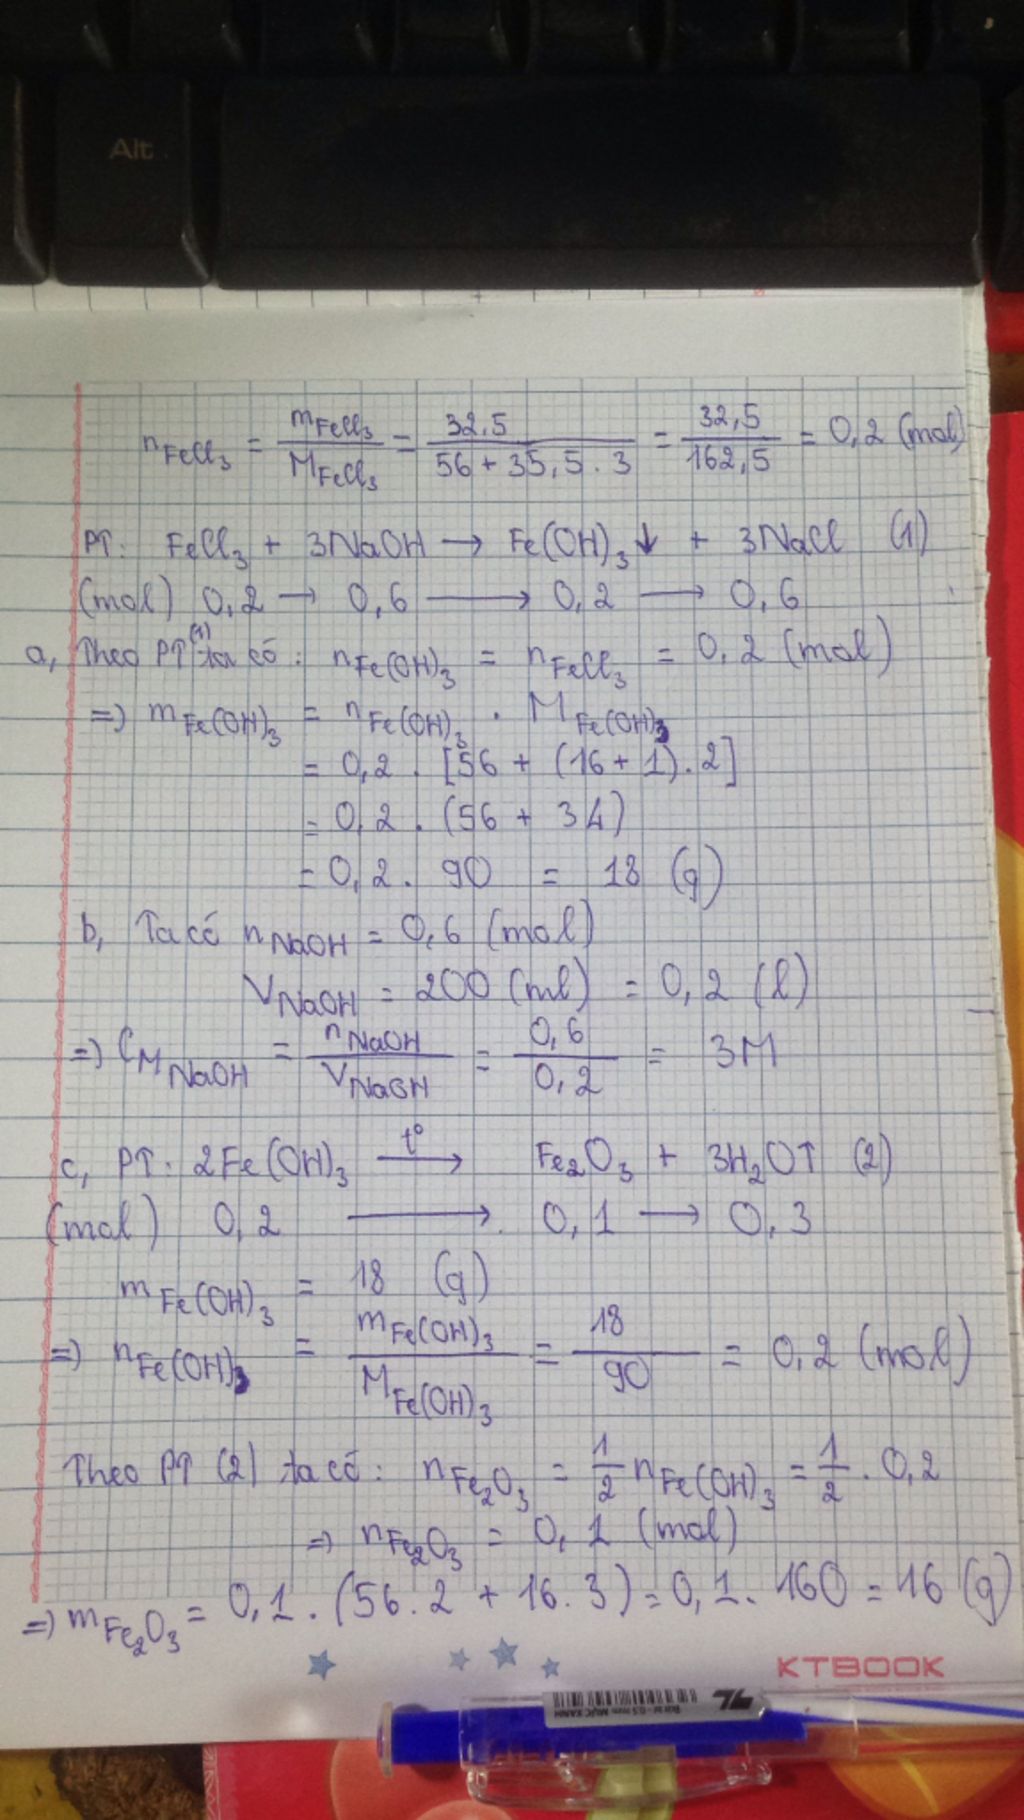 Alt
nFeCl₃ = mFeCl₃/MFeCl₃ = 32,5/(56 + 35,5 . 3) = 32,5/162,5 = 0,2 (mol)
PT: FeCl₃ + 3NaOH → Fe(OH)₃↓ + 3NaCl (1)
(mol) 0,2 → 0,6 → 0,2 → 0,6
a, Theo PT(1) ta có: nFe(OH)₃ = nFeCl₃ = 0,2 (mol)
=> mFe(OH)₃ = nFe(OH)₃ . MFe(OH)₃
= 0,2 . [56 + (16 + 1).2]
= 0,2 . (56 + 34)
= 0,2 . 90 = 18 (g)
b, Ta có nNaOH = 0,6 (mol)
VNaOH = 200 (ml) = 0,2 (l)
=> CM NaOH = nNaOH/VNaOH = 0,6/0,2 = 3M
c, PT: 2Fe(OH)₃ t°→ Fe₂O₃ + 3H₂O↑ (2)
(mol) 0,2 → 0,1 → 0,3
mFe(OH)₃ = 18 (g)
=> nFe(OH)₃ = mFe(OH)₃/MFe(OH)₃ = 18/90 = 0,2 (mol)
Theo PT (2) ta có: nFe₂O₃ = 1/2 nFe(OH)₃ = 1/2 . 0,2
=> nFe₂O₃ = 0,1 (mol)
=> mFe₂O₃ = 0,1 . (56.2 + 16.3) = 0,1 . 160 = 16 (g)
KTBOOK